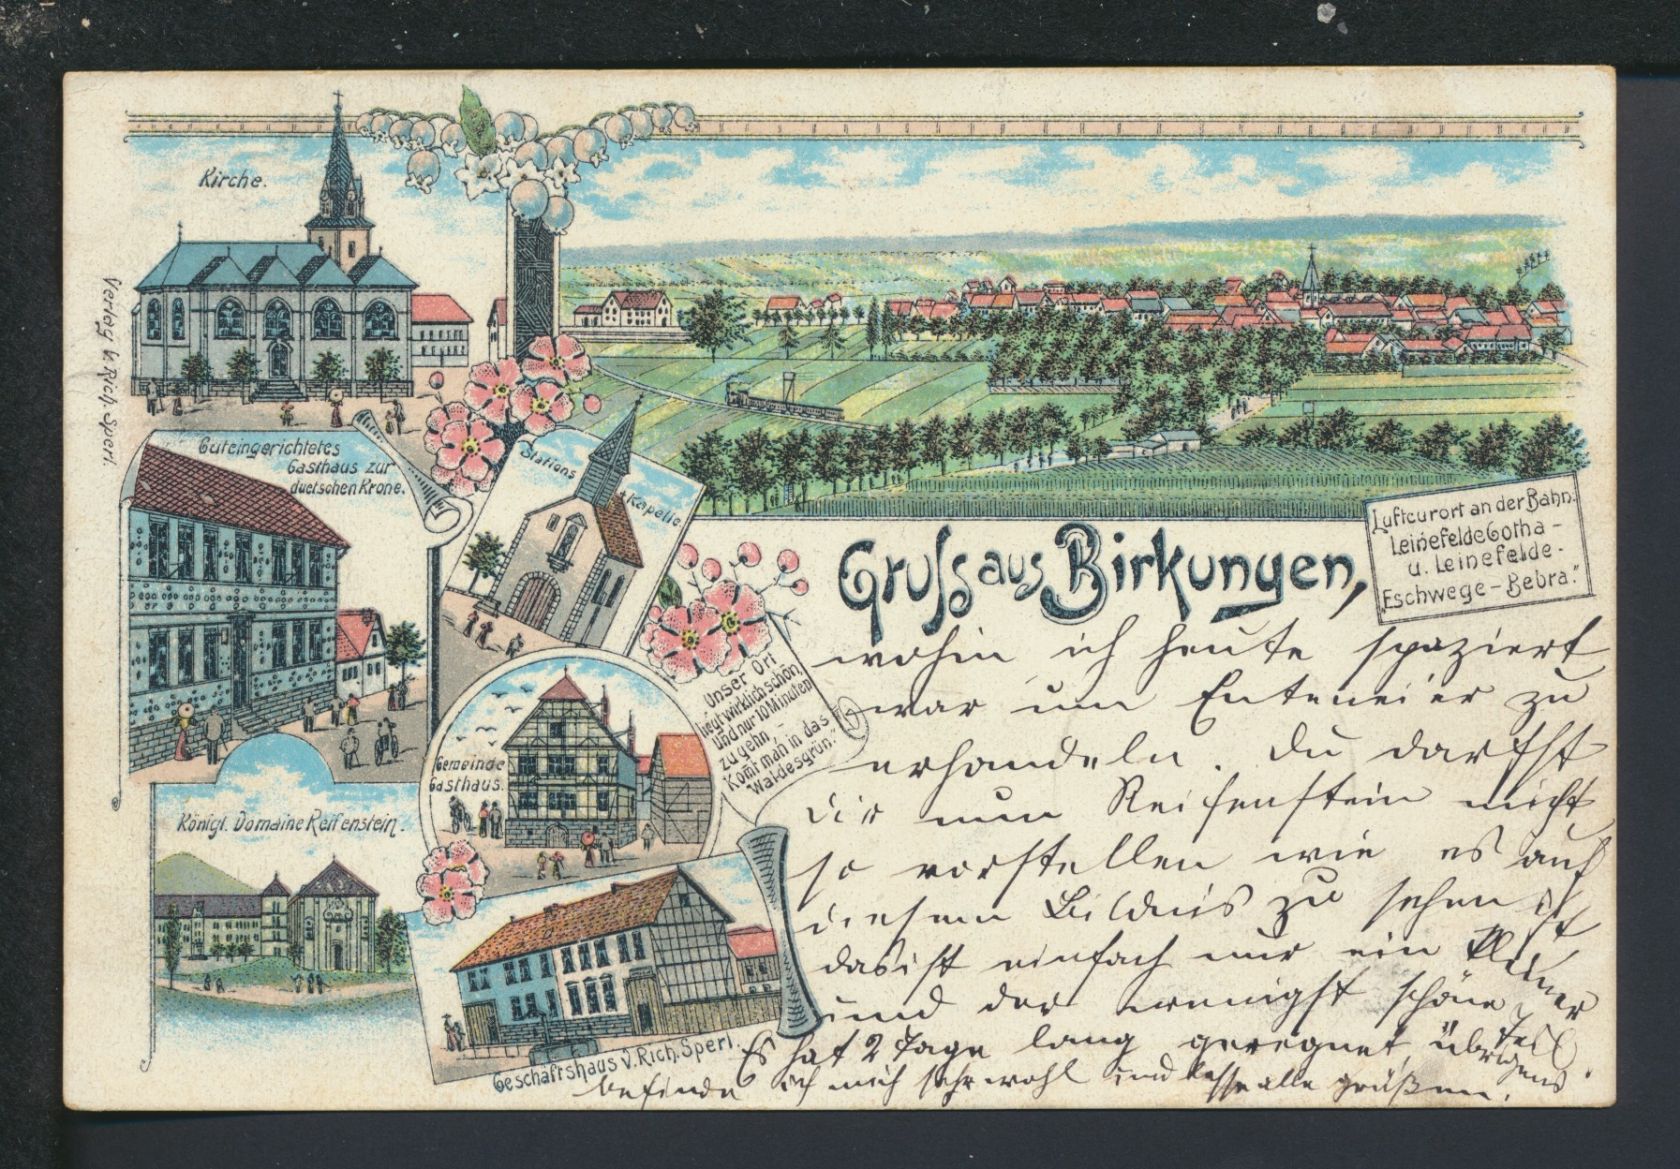 Kirche.
Verlag v. Rich. Sperl.
Guteingerichtetes
Gasthaus zur
duetschen Krone.
Stations
Kapelle.
Luftcurort an der Bahn.
Leinefelde Gotha -
u. Leinefelde -
Eschwege - Bebra."
Gruss aus Birkungen,
Unser Ort
liegt wirklich schön,
Und nur 10 Minuten
zu gehn, -
Komt man in das
Waldesgrün."
Gemeinde
Gasthaus.
Königl. Domaine Reifenstein.
Geschäftshaus v. Rich. Sperl.
wohin ich heute spaziert
war um Enteneier zu
erhandeln. Du darfst
Dir nun Reifenstein nicht
so vorstellen wie es auf
diesem Bildnis zu sehen ist
das ist einfach nur ein kleiner
und der wenigst schöne Teil
Es hat 2 Tage lang geregnet, übrigens
befinde ich mich sehr wohl und lasse alle grüßen.